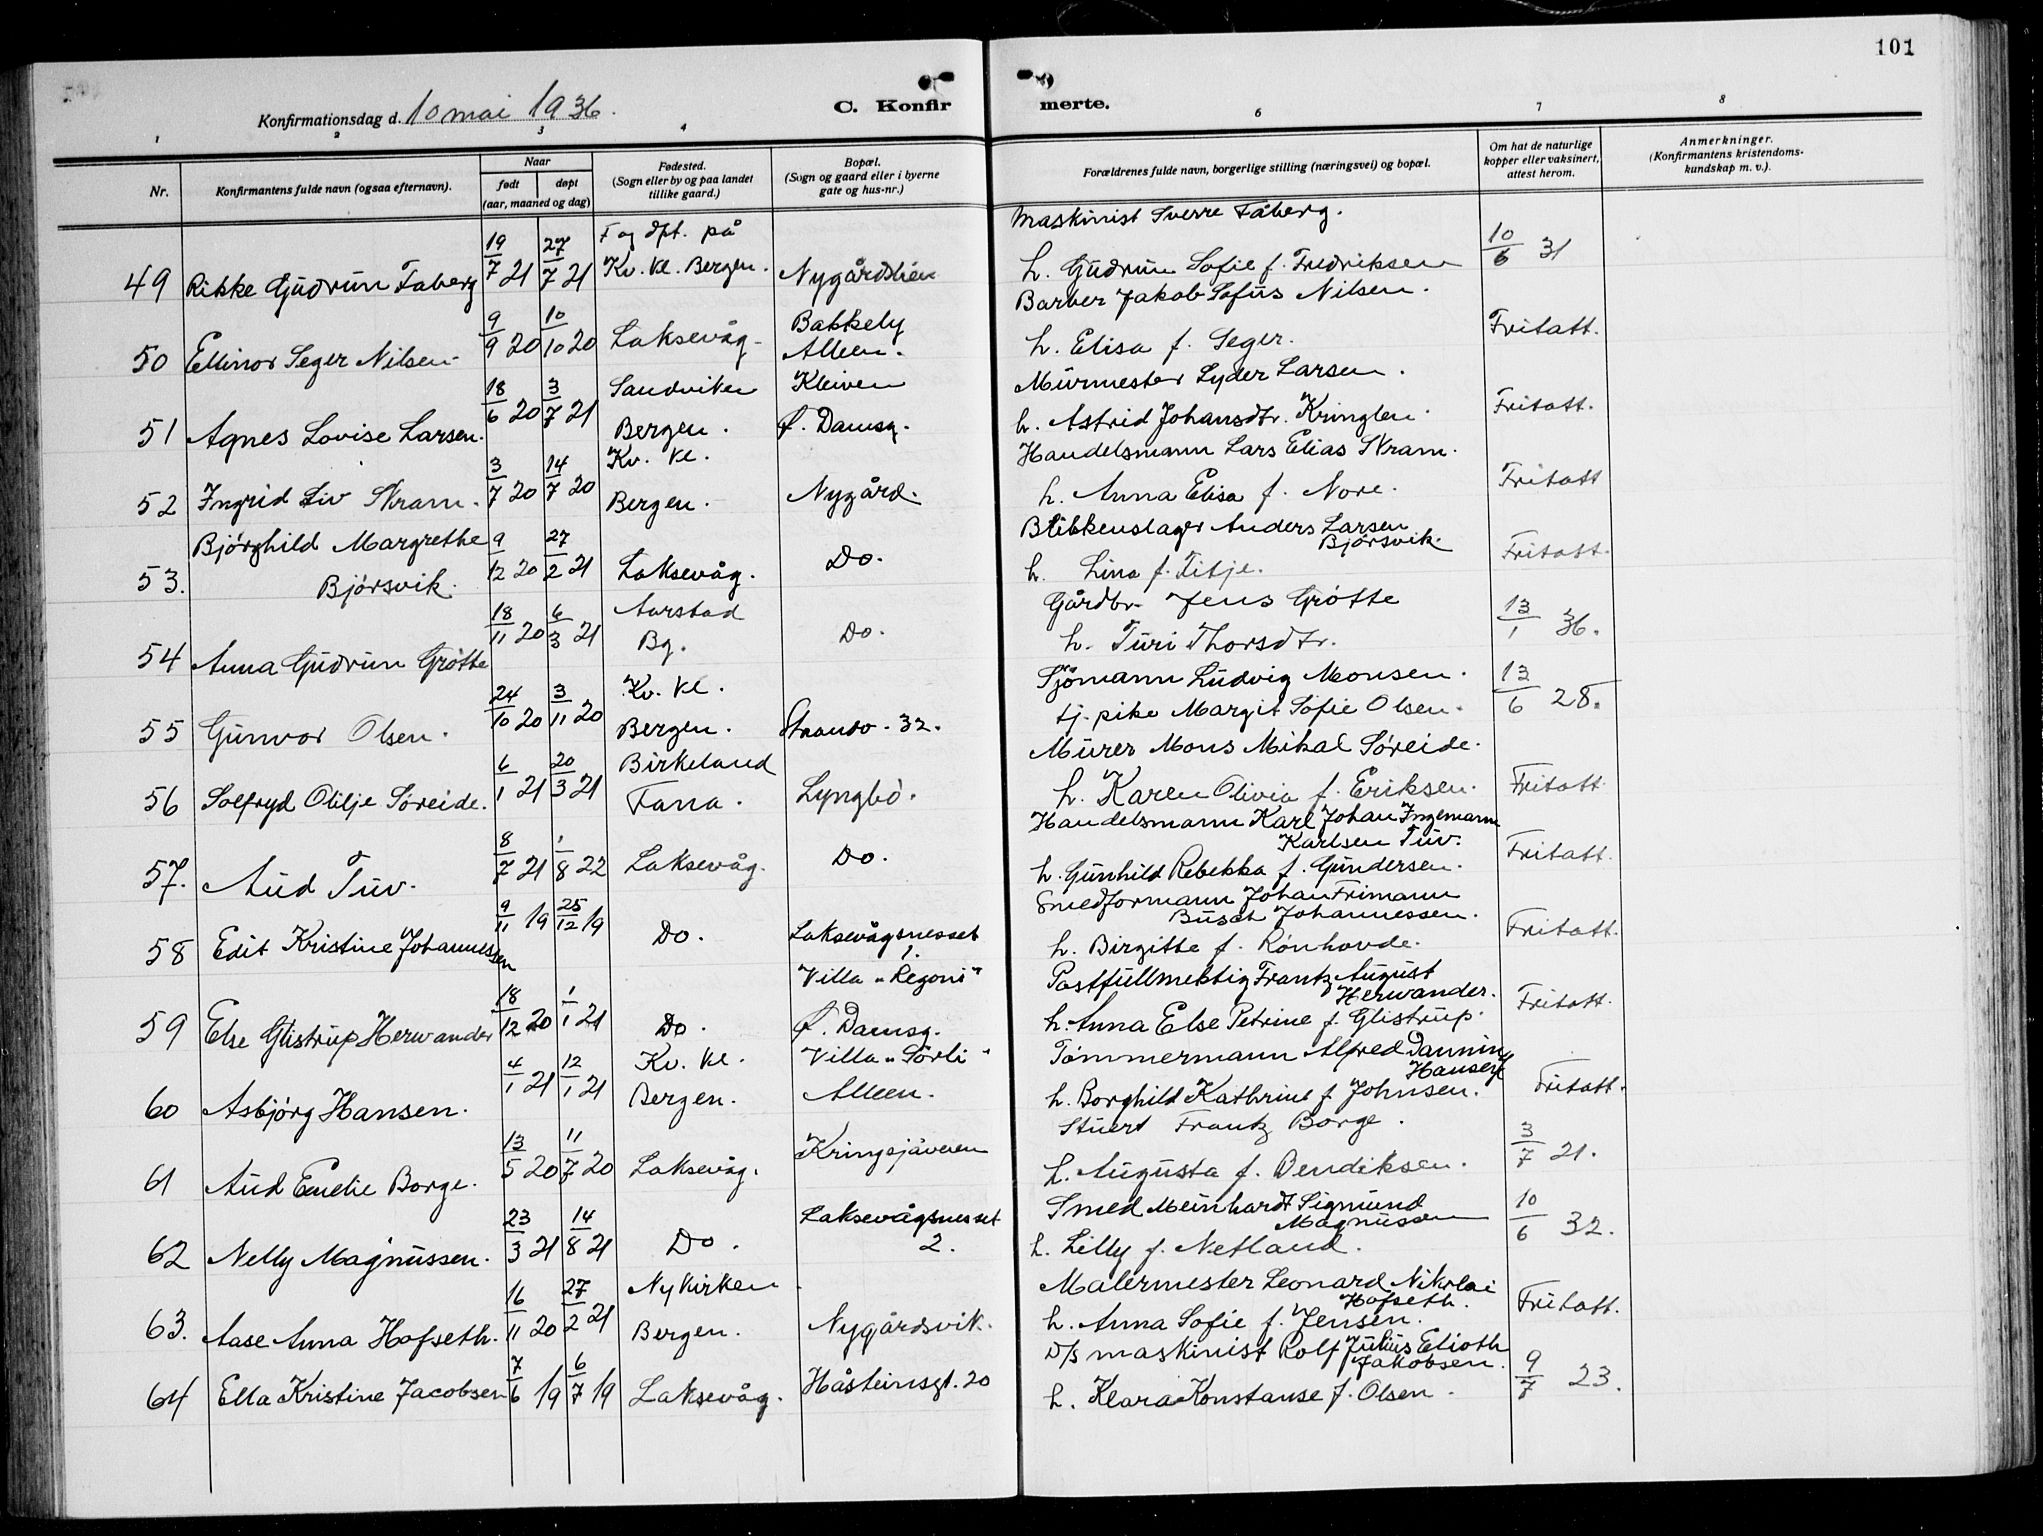 101
Konfirmationsdag d. 10 mai 1936.
C. Konfirmerte.
1 2 3 4 6 7 8
Nr.
Konfirmantens fulde navn (ogsaa efternavn).
Naar
født
døpt
(aar, maaned og dag)
Fødested.
(Sogn eller by og paa landet
tillike gaard.)
Bopæl.
(Sogn og gaard eller i byerne
gate og hus-nr.)
Forældrenes fulde navn, borgerlige stilling (næringsvei) og bopæl.
Om hat de naturlige
kopper eller vaksinert,
attest herom.
Anmerkninger.
(Konfirmantens kristendoms-
kundskap m. v.).
49 Rikke Gudrun Faberg 19/7 21 27/7 21 F og dpt. på
Kv. Kl. Bergen. Nygårdslien
Maskinist Sverre Fåberg.
h. Gudrun Sofie f. Fredriksen 10/6 31
50 Ellinor Seger Nilsen. 9/9 20 10/10 20 Laksevåg. Bakkely
Alleen.
Barber Jakob Sofus Nilsen.
h. Elisa f. Seger. Fritatt.
51 Agnes Lovise Larsen. 18/6 20 3/7 21 Sandviken
Bergen. Kleiven
f. Damsg.
Murmester Lyder Larsen.
h. Astrid Johansdtr. Kringlen. Fritatt.
52 Ingrid Liv Skram. 3/7 20 14/7 20 Kv. Kl.
Bergen. Nygård.
Handelsmann Lars Elias Skram.
h. Anna Elisa f. Nore. Fritatt
53. Bjørghild Margrethe
Bjørsvik. 9/12 20 27/2 21 Laksevåg. Do.
Blikkenslager Anders Larsen
Bjørsvik.
h. Lina f. Titje. Fritatt.
54 Anna Gudrun Grøtte 18/11 20 6/3 21 Aarstad
Bg. Do.
Gårdbr. Jens Grøtte
h. Turi Thorsdtr. 13/1 36.
55 Gunvor Olsen. 24/10 20 3/11 20 Kv. Kl.
Bergen. Strandv. 32.
Sjømann Ludvig Monsen.
tj. pike Margit Sofie Olsen. 13/6 28.
56 Solfryd Otilje Søreide. 6/1 21 20/3 21 Birkeland
Fana. Lyngbø.
Murer Mons Mikal Søreide.
h. Karen Olivia f. Eriksen. Fritatt.
57. Aud Tuv. 8/7 21 1/8 22 Laksevåg. Do.
Handelsmann Karl Johan Ingemann
Karlsen Tuv.
h. Gunhild Rebekka f. Gundersen. Fritatt.
58 Edit Kristine Johannessen 9/11 19 25/12 19 Do. Laksevågsnesset
1.
Smedformann Johan Frimann
Busch Johannessen.
h. Birgitte f. Rønhovde. Fritatt.
59 Else Glistrup Herwander 18/12 20 1/1 21 Do. Villa "Regoni"
f. Damsg.
Postfullmektig Frantz August
Herwander.
h. Anna Else Petrine f. Glistrup. Fritatt.
60 Asbjørg Hansen. 4/1 21 12/1 21 Kv. Kl.
Bergen. Villa "Sørli"
Alleen.
Tømmermann Alfred Danning
Hansen
h. Borghild Kathrine f. Johnsen. Fritatt.
61 Aud Emelie Borge. 13/5 20 11/7 20 Laksevåg. Kringsjåveien
Stuert Frantz Borge.
h. Augusta f. Bendiksen. 3/7 21.
62 Nelly Magnussen. 23/3 21 14/8 21 Do. Laksevågsnesset
2.
Smed Meinhardt Sigmund
Magnussen
h. Lilly f. Netland. 10/6 32.
63. Aase Anna Hofseth. 16/11 20 27/2 21 Nykirken
Bergen. Nygårdsvik.
Malermester Leonard Nikolai
Hofseth.
h. Anna Sofie f. Jensen. Fritatt.
64 Ella Kristine Jacobsen 7/6 19 6/7 19 Laksevåg. Håsteinsgt. 20
D/S maskinist Rolf Julius Elioth
Jakobsen.
h. Klara Konstanse f. Olsen. 9/7 23.